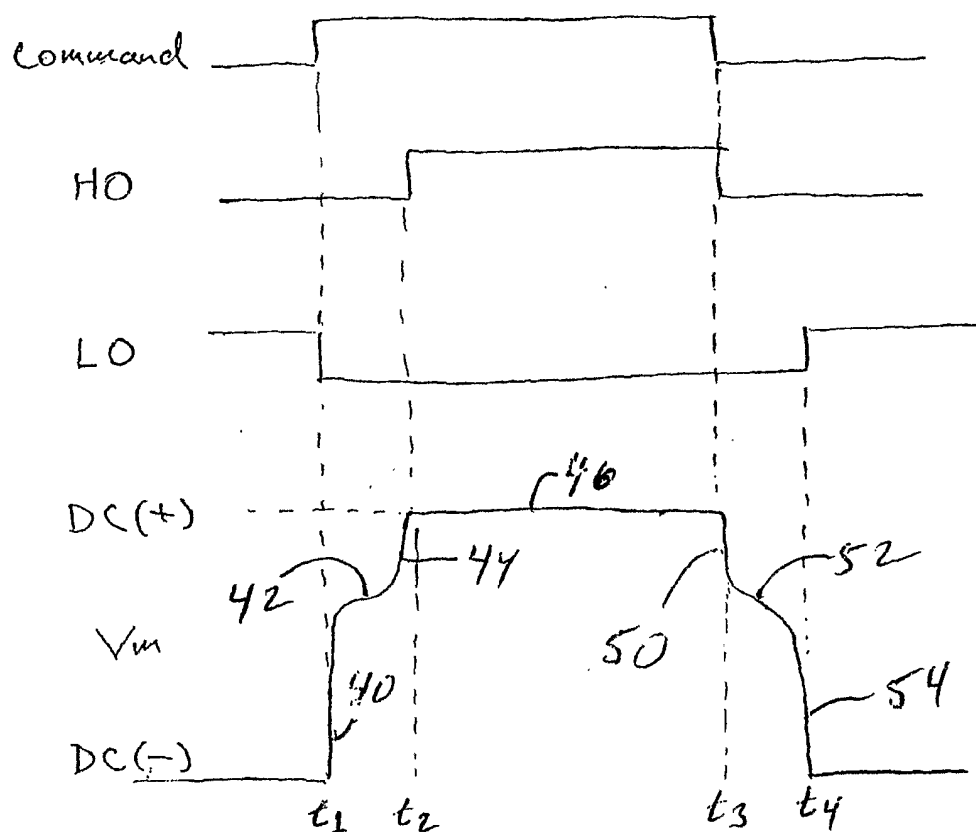 Command
HO
LO
DC(+)
46
42
44
52
Vm
50
40
54
DC(-)
t1 t2 t3 t4